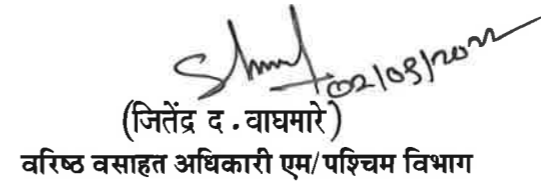 02/09/2022
(जितेंद्र द . वाघमारे)
वरिष्ठ वसाहत अधिकारी एम/पश्चिम विभाग